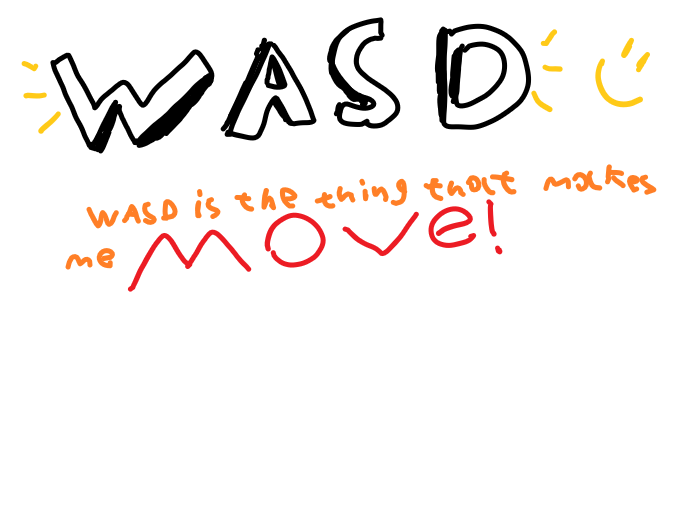 WASD
WASD is the thing that makes
me MOVe!